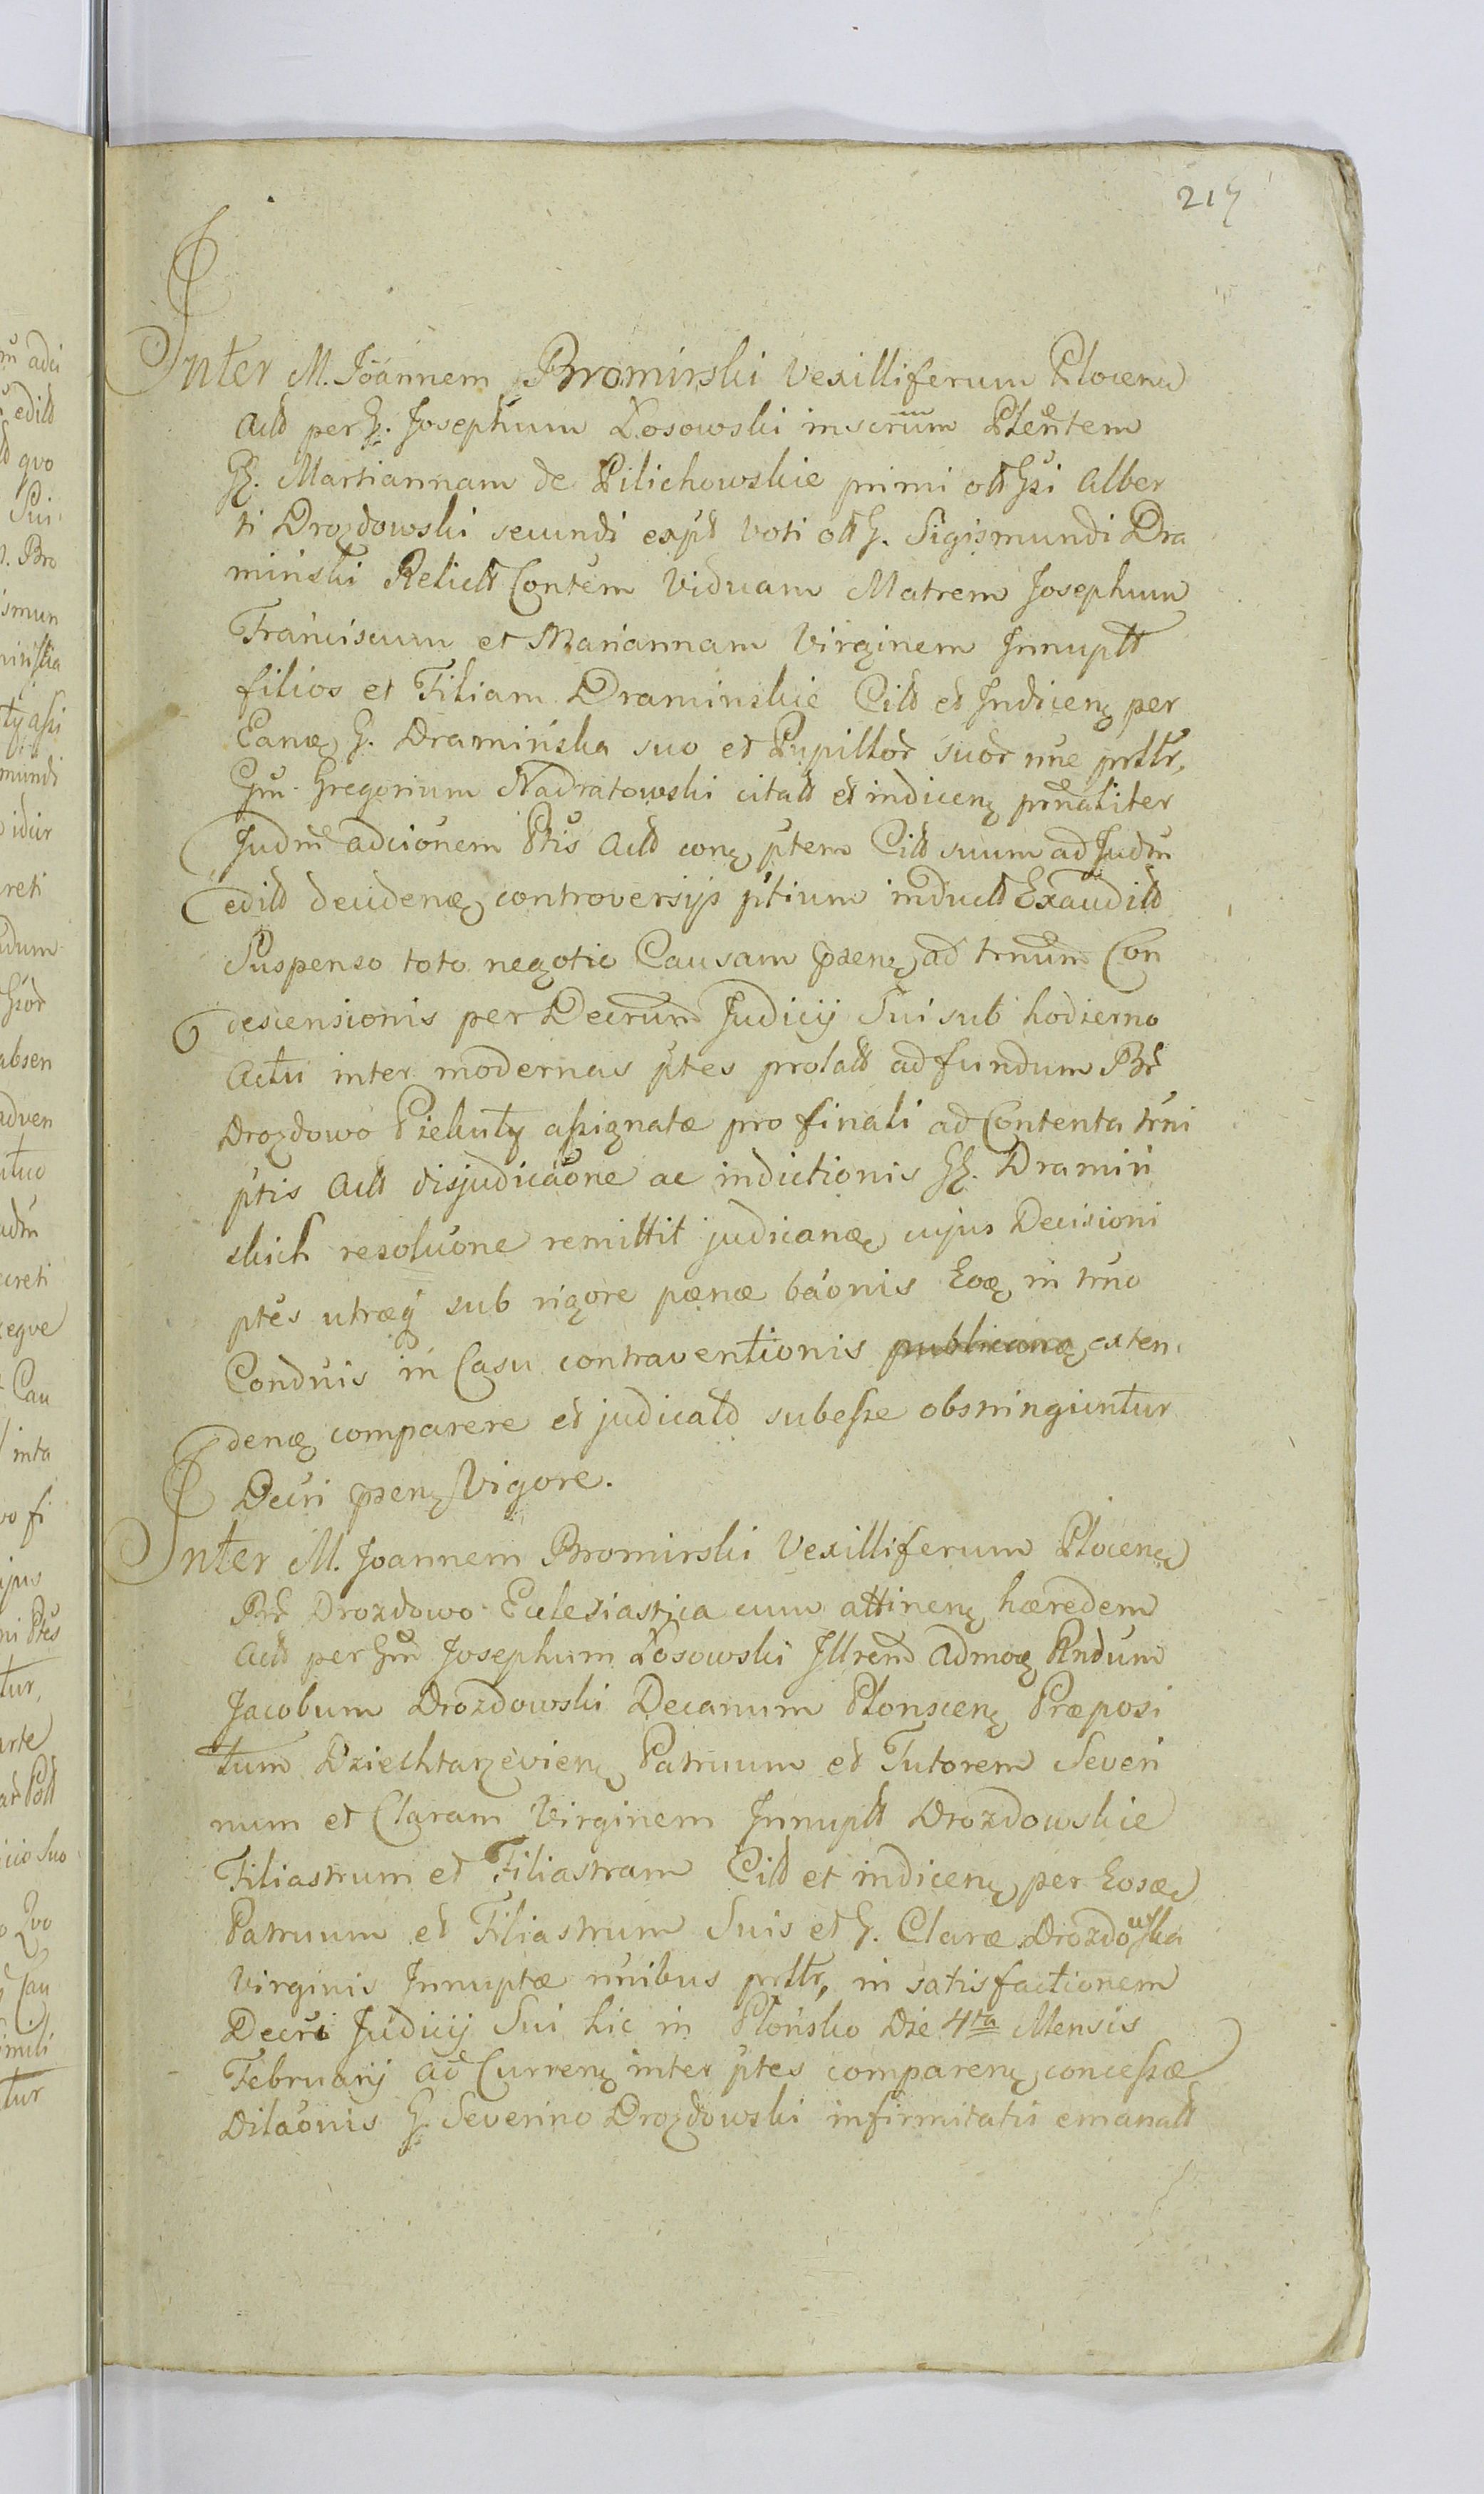 217
Inter M. Joannem Bromirski Vexilliferum Plocens
Actt per G. Josephum Łosowski inscrum Plentem
GG. Martiannam de Pilichowskie primi ott Gsi Alber
ti Drozdowski secundi expt voti ott G. Sigismundi Dra
minski Relictt Contem Viduam Matrem Josephum
Franciscum et Mariannam Virginem Innuptt
filios et Filiam Draminskie Citt et Indicen per
Eand G. Dramińska suo et Pupillor suor nne prttr,
Gm Gregorium Nadratowski citatt et indicen prnaliter
Judm adcionem Ptis Actt conq ptem Citt suum ad Judm
editt decidend controversijs ptium inductt Exauditt
Suspenso toto negotio Causam psen ad trnum Con
descensionis per Decrum Judicij Sui sub hodierno
Actu inter modernas ptes prolatt ad fundum Br
Drozdowo Piekuty assignatæ pro finali ad Contenta trni
ptis Actt disjudicaone ac indictionis GG. Dramiń
skich resoluone remittit judicand cujus Decisioni
ptes utræq sub rigore pœnæ baonis Eod in trno
Conduis in Casu contraventionis publicand exten
dend comparere et judicatt subesse obstringuntur
Decri psen Vigore.
Inter M. Joannem Bromirski Vexilliferum Plocens
Br Drozdowo Ecclesiastica cum attinen hæredem
Actt per Gm Josephum Łosowski Illrem Admod Rndum
Jacobum Drozdowski Decanum Plonscen Præposi
tum Dziechtarzevien Patruum et Tutorem Severi
num et Claram Virginem Innuptt Drozdowskie
Filiastrum et Filiastram Citt et indicen per Eosd
Patruum et Filiastrum Suis et G. Claræ Drozdowska
Virginis Innuptæ nnibus prttr, in satisfactionem
Decri Judicij Sui hic in Płońsko Die 4ta Mensis
Februarij Ad Curren inter ptes comparen concessæ
Dilaonis G. Severino Drozdowski infirmitatis emanatt